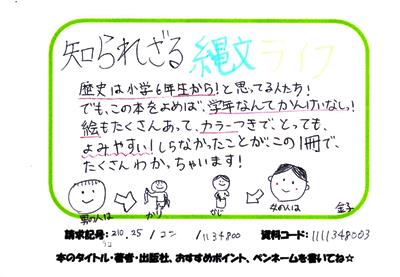 知られざる 縄文ライフ
歴史は小学6年生から!と思ってる人たち!
でも、この本をよめば、学年なんてかんけいなしっ!
絵もたくさんあって、カラーつきで、とっても、
よみやすい!しらなかったことが、この1冊で、
たくさんわかっちゃいます!
男の人は かり 女の人は
請求記号: 210.25 / コン / 1134800 資料コード: 1111348003
本のタイトル・著者・出版社、おすすめポイント、ペンネームを書いてね☆